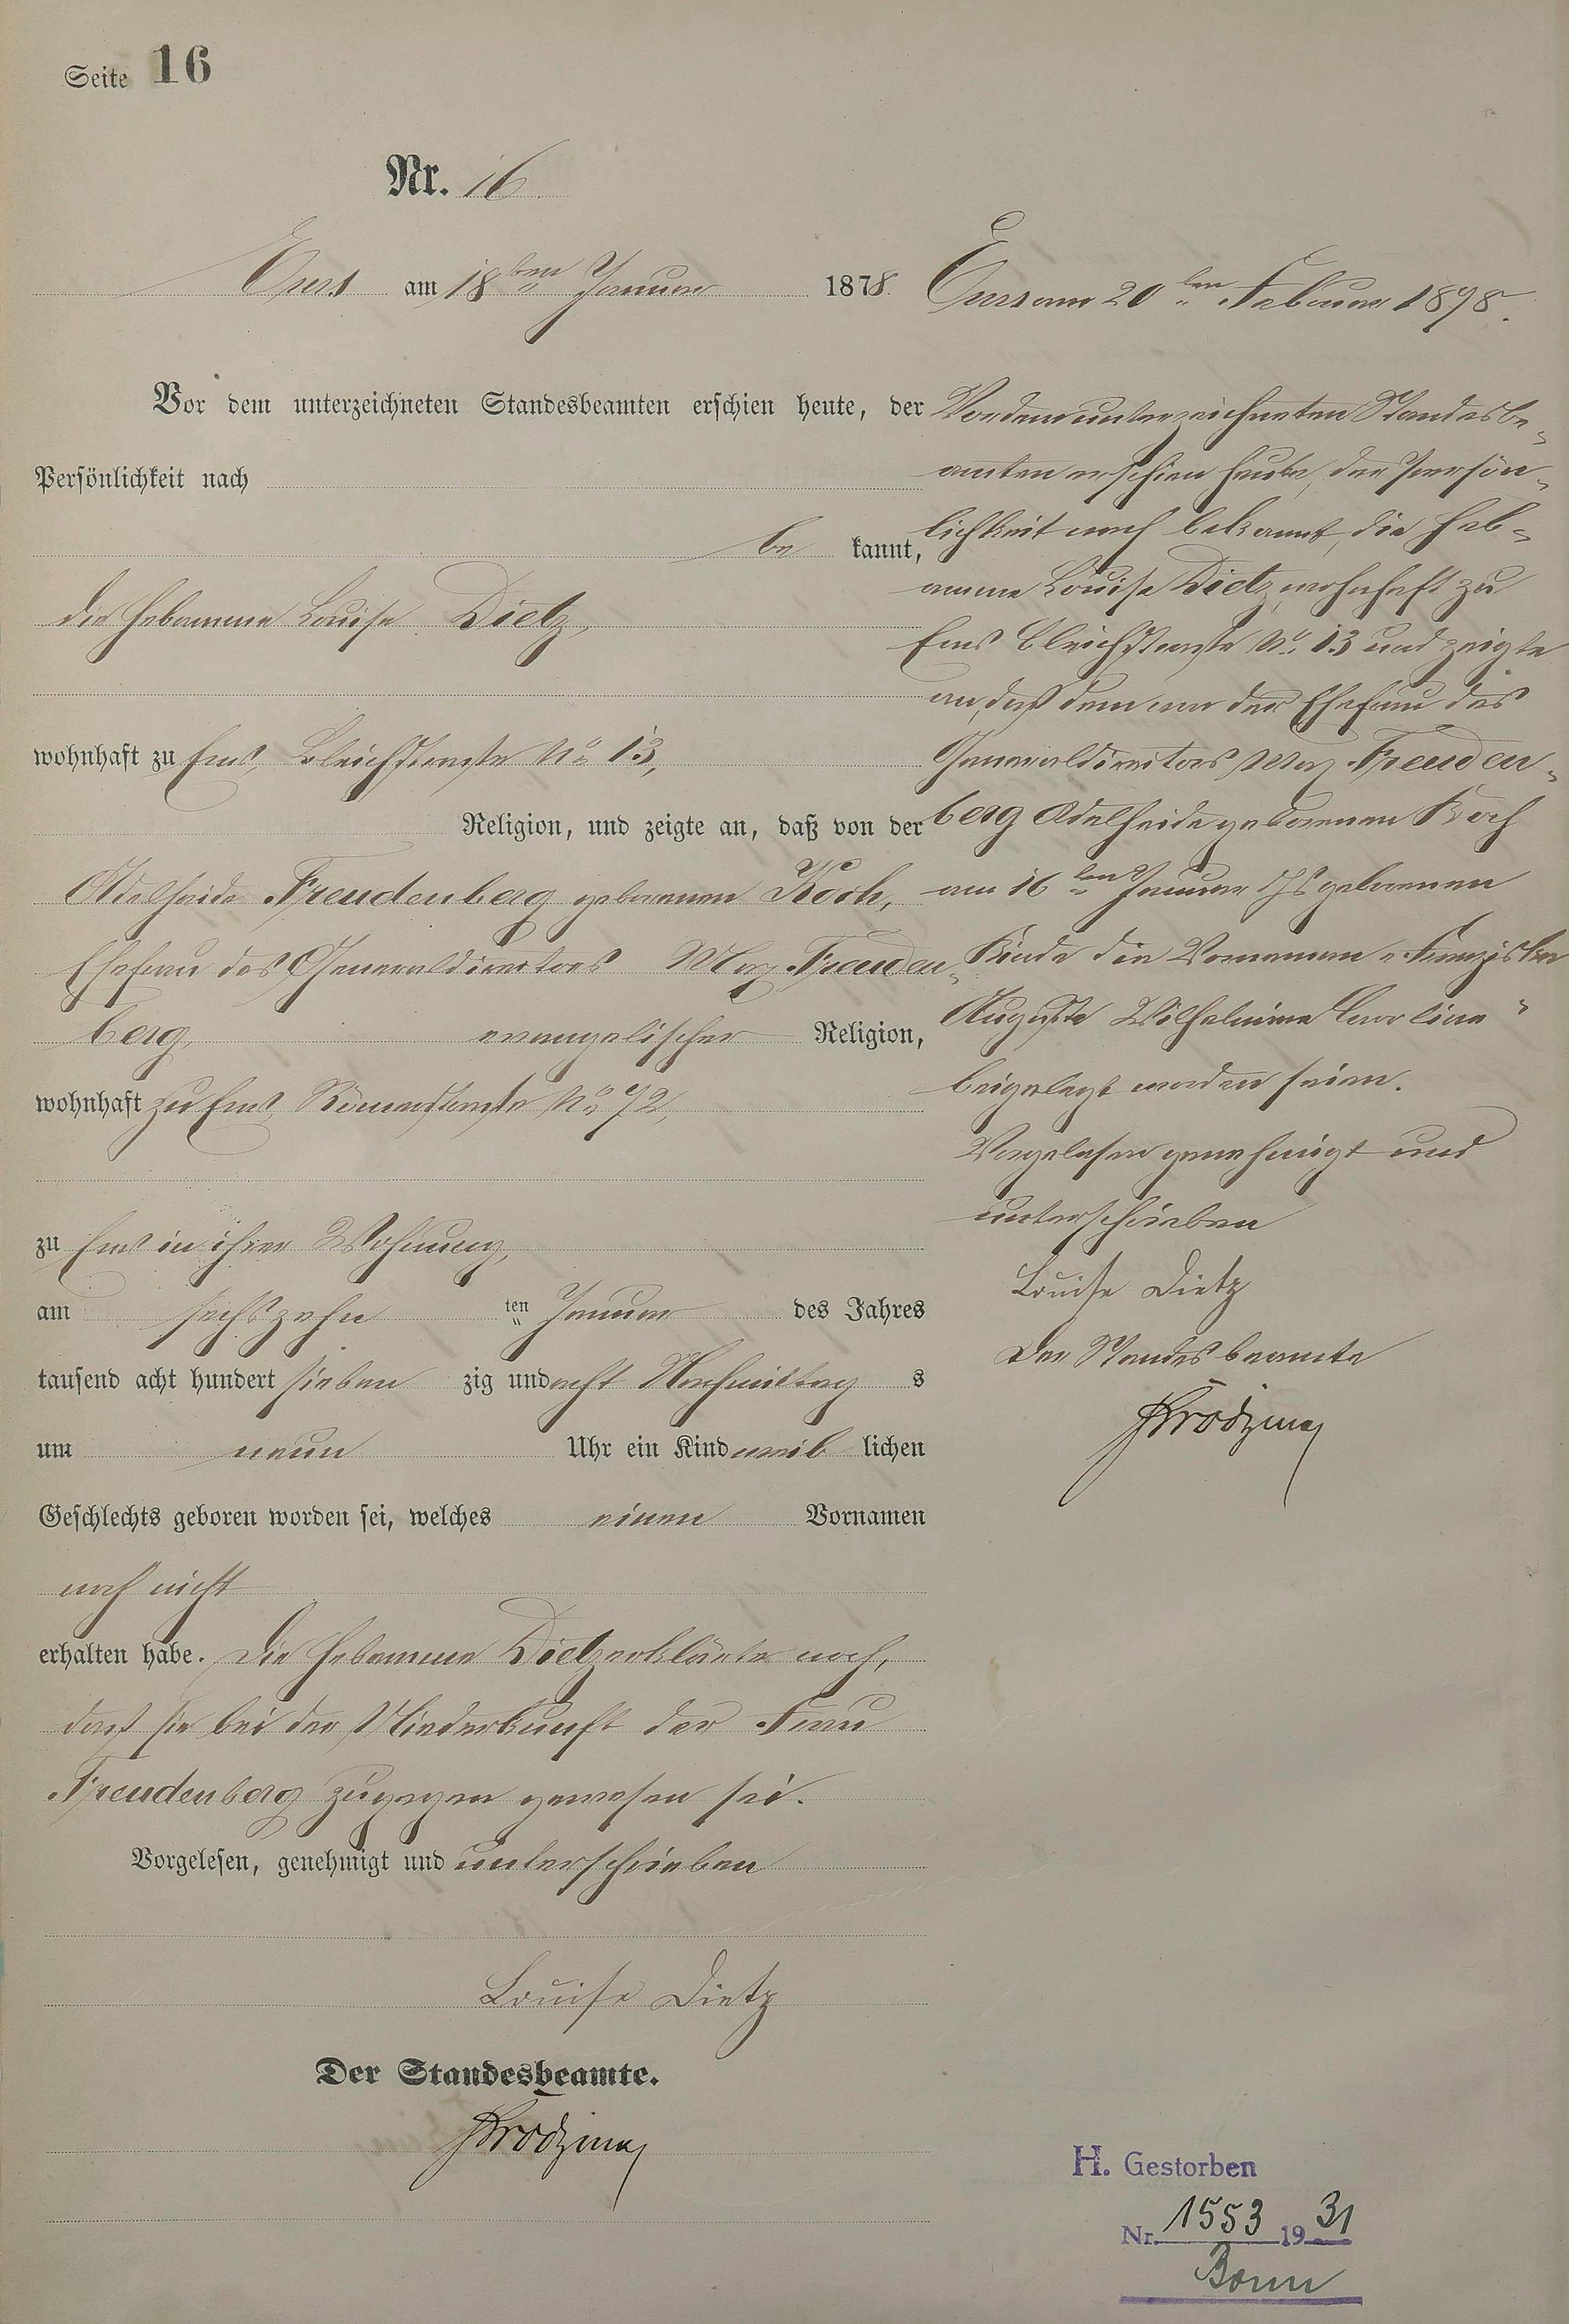 Seite 16
Nr. 16
Ems am 18ten Januar 1878.
Vor dem unterzeichneten Standesbeamten erschien heute, der
Persönlichkeit nach
be kannt,
die Hebamme Louise Dietz,
wohnhaft zu Ems, Bleichstraße No 13,
Religion, und zeigte an, daß von der
Adelheide Freudenberg geborenen Koch,
Ehefrau des Generaldirectors Max Freuden-
berg, evangelischer Religion,
wohnhaft zu Ems, Römerstraße No 72,
zu Ems in ihrer Wohnung,
am sechszehn ten Januar des Jahres
tausend acht hundert sieben zig und acht Nachmittag s
um neun Uhr ein Kind weib lichen
Geschlechts geboren worden sei, welches einen Vornamen
noch nicht
erhalten habe. Die Hebamme Dietz erklärte noch,
daß sie bei der Niederkunft der Frau
Freudenberg zugegen gewesen sei.
Vorgelesen, genehmigt und unterschrieben
Louise Dietz
Der Standesbeamte.
Ems am 20ten Februar 1878.
Vor dem unterzeichneten Standesbe-
amten erschien heute, der Persön-
lichkeit nach bekannt, die Heb-
amme Louise Dietz, wohnhaft zu
Ems Bleichstraße No 13 und zeigte
an, daß dem von der Ehefrau des
Generaldirectors Max Freuden-
berg Adelheide geborenen Koch
am 16ten Januar d Js geborenen
Kinde die Vornamen "Franziska
Auguste Wilhelmine Caroline"
beigelegt worden seien.
Vorgelesen genehmigt und
unterschrieben
Louise Dietz
Der Standesbeamte
H. Gestorben
Nr. 1553 1931
Bonn